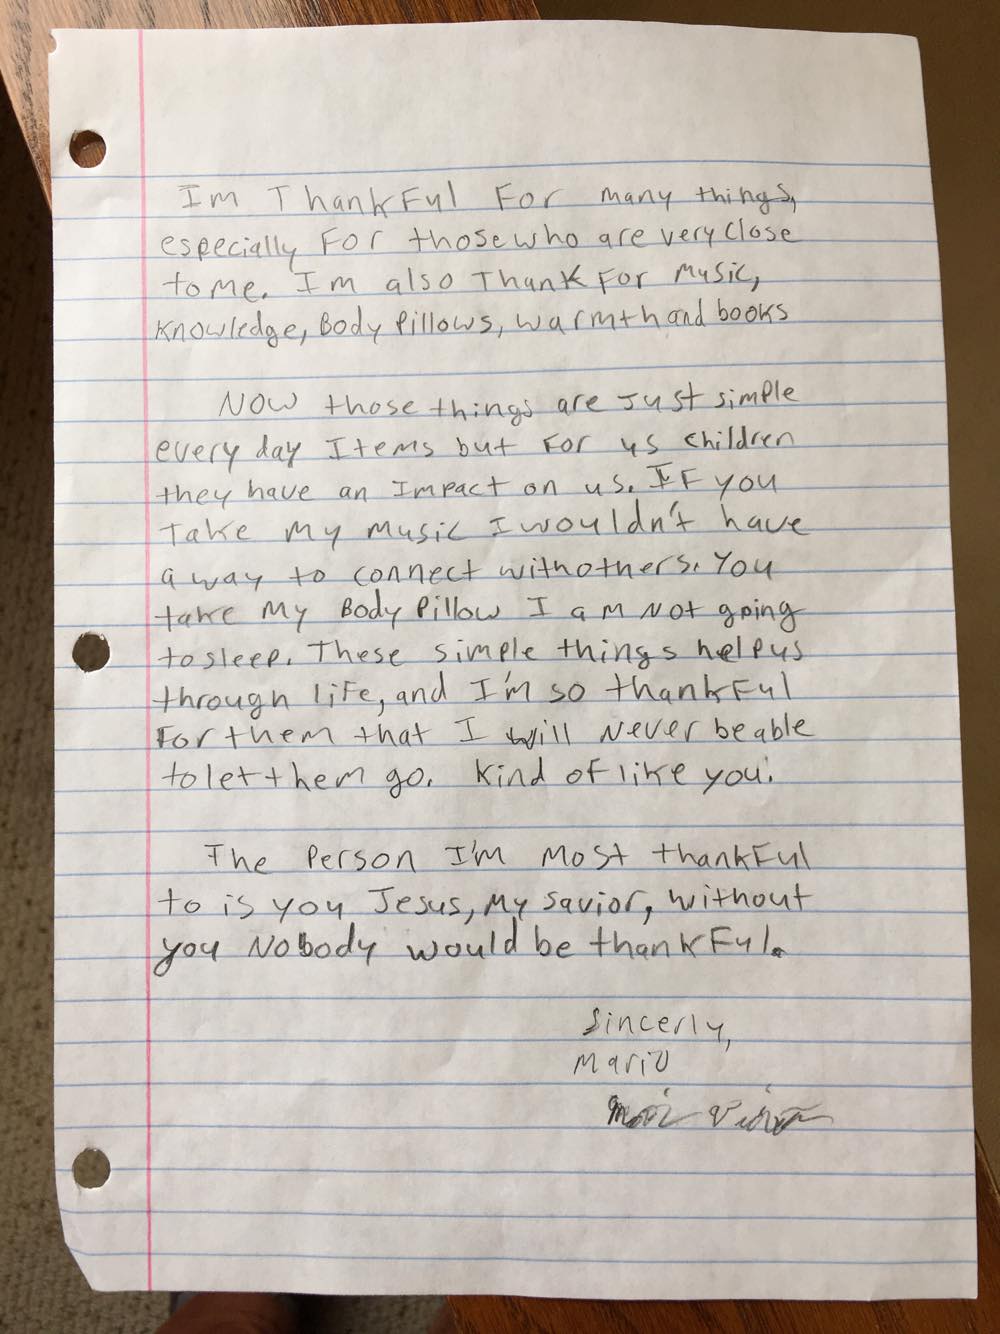 Im Thankful For many things,
especially For those who are very close
to me. Im also Thank For Music,
Knowledge, Body Pillows, warmth and books
Now those things are Just simple
every day Items but For us children
they have an Impact on us. IF you
Take My Music I wouldn't have
a way to connect with others. You
take My Body Pillow I am Not going
to sleep. These simple things help us
through life, and I'm so thankful
For them that I will Never be able
to let them go. Kind of like you.
The Person I'm Most thankful
to is you Jesus, My savior, without
you Nobody would be thankful.
Sincerly,
Mario